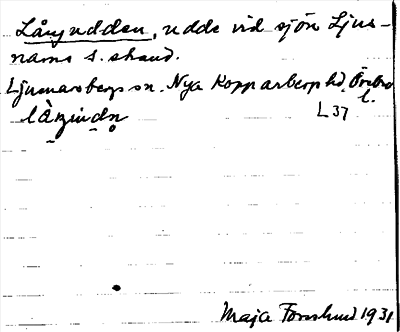 Långudden, udde vid sjön Ljus-
narns s. strand.
Ljusnarsbergs sn. Nya Kopparbergs hd. Örebro
l.
L 37
Maja Forslund 1931